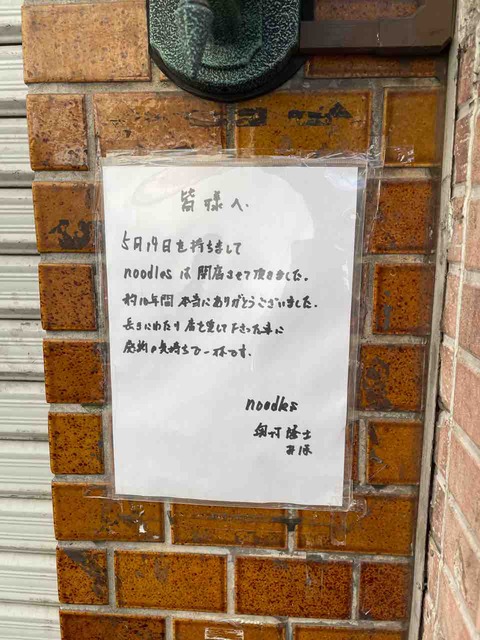 皆様へ
5月19日を持ちまして
noodles は閉店させて頂きました。
約10年間本当にありがとうございました。
長きにわたり店を愛して下さった事に
感謝の気持ちで一杯です。
noodles
隆士